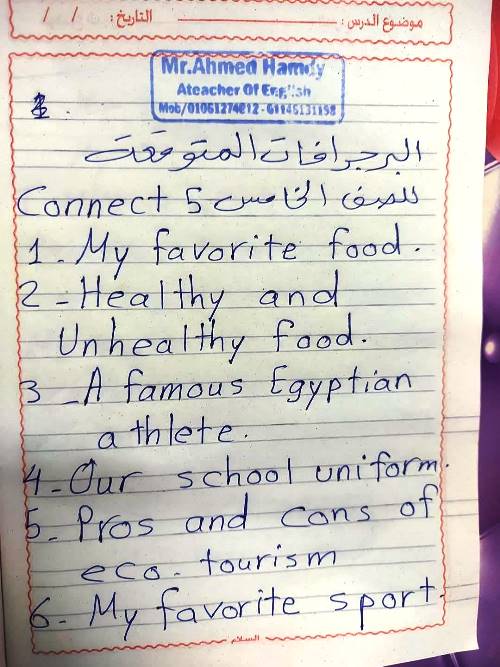 موضوع الدرس : التاريخ : / /
Mr.Ahmed Hamdy
Ateacher Of English
Mob/01061274812 - 01145131158
البرجرافات المتوقعة
للصف الخامس Connect 5
1 - My favorite food.
2 - Healthy and
Unhealthy food.
3 - A famous Egyptian
athlete.
4 - Our school uniform.
5 - Pros and cons of
eco - tourism
6 - My favorite sport.
السلام